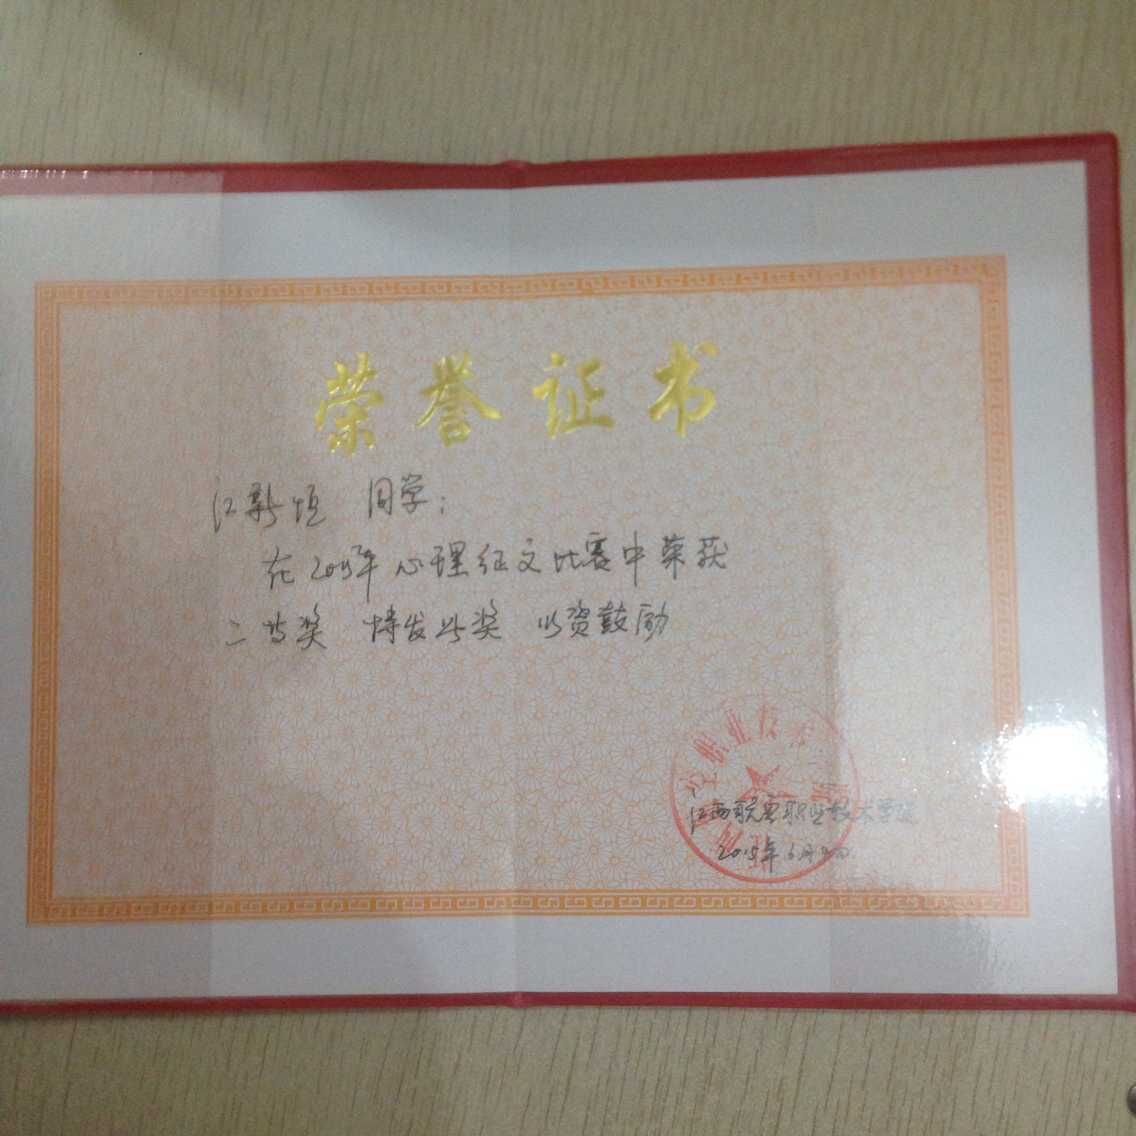 荣誉证书
江新恒 同学：
在2015年心理征文比赛中荣获
二等奖 特发此奖 以资鼓励
职业技术
江西航空职业技术学院
2015年6月